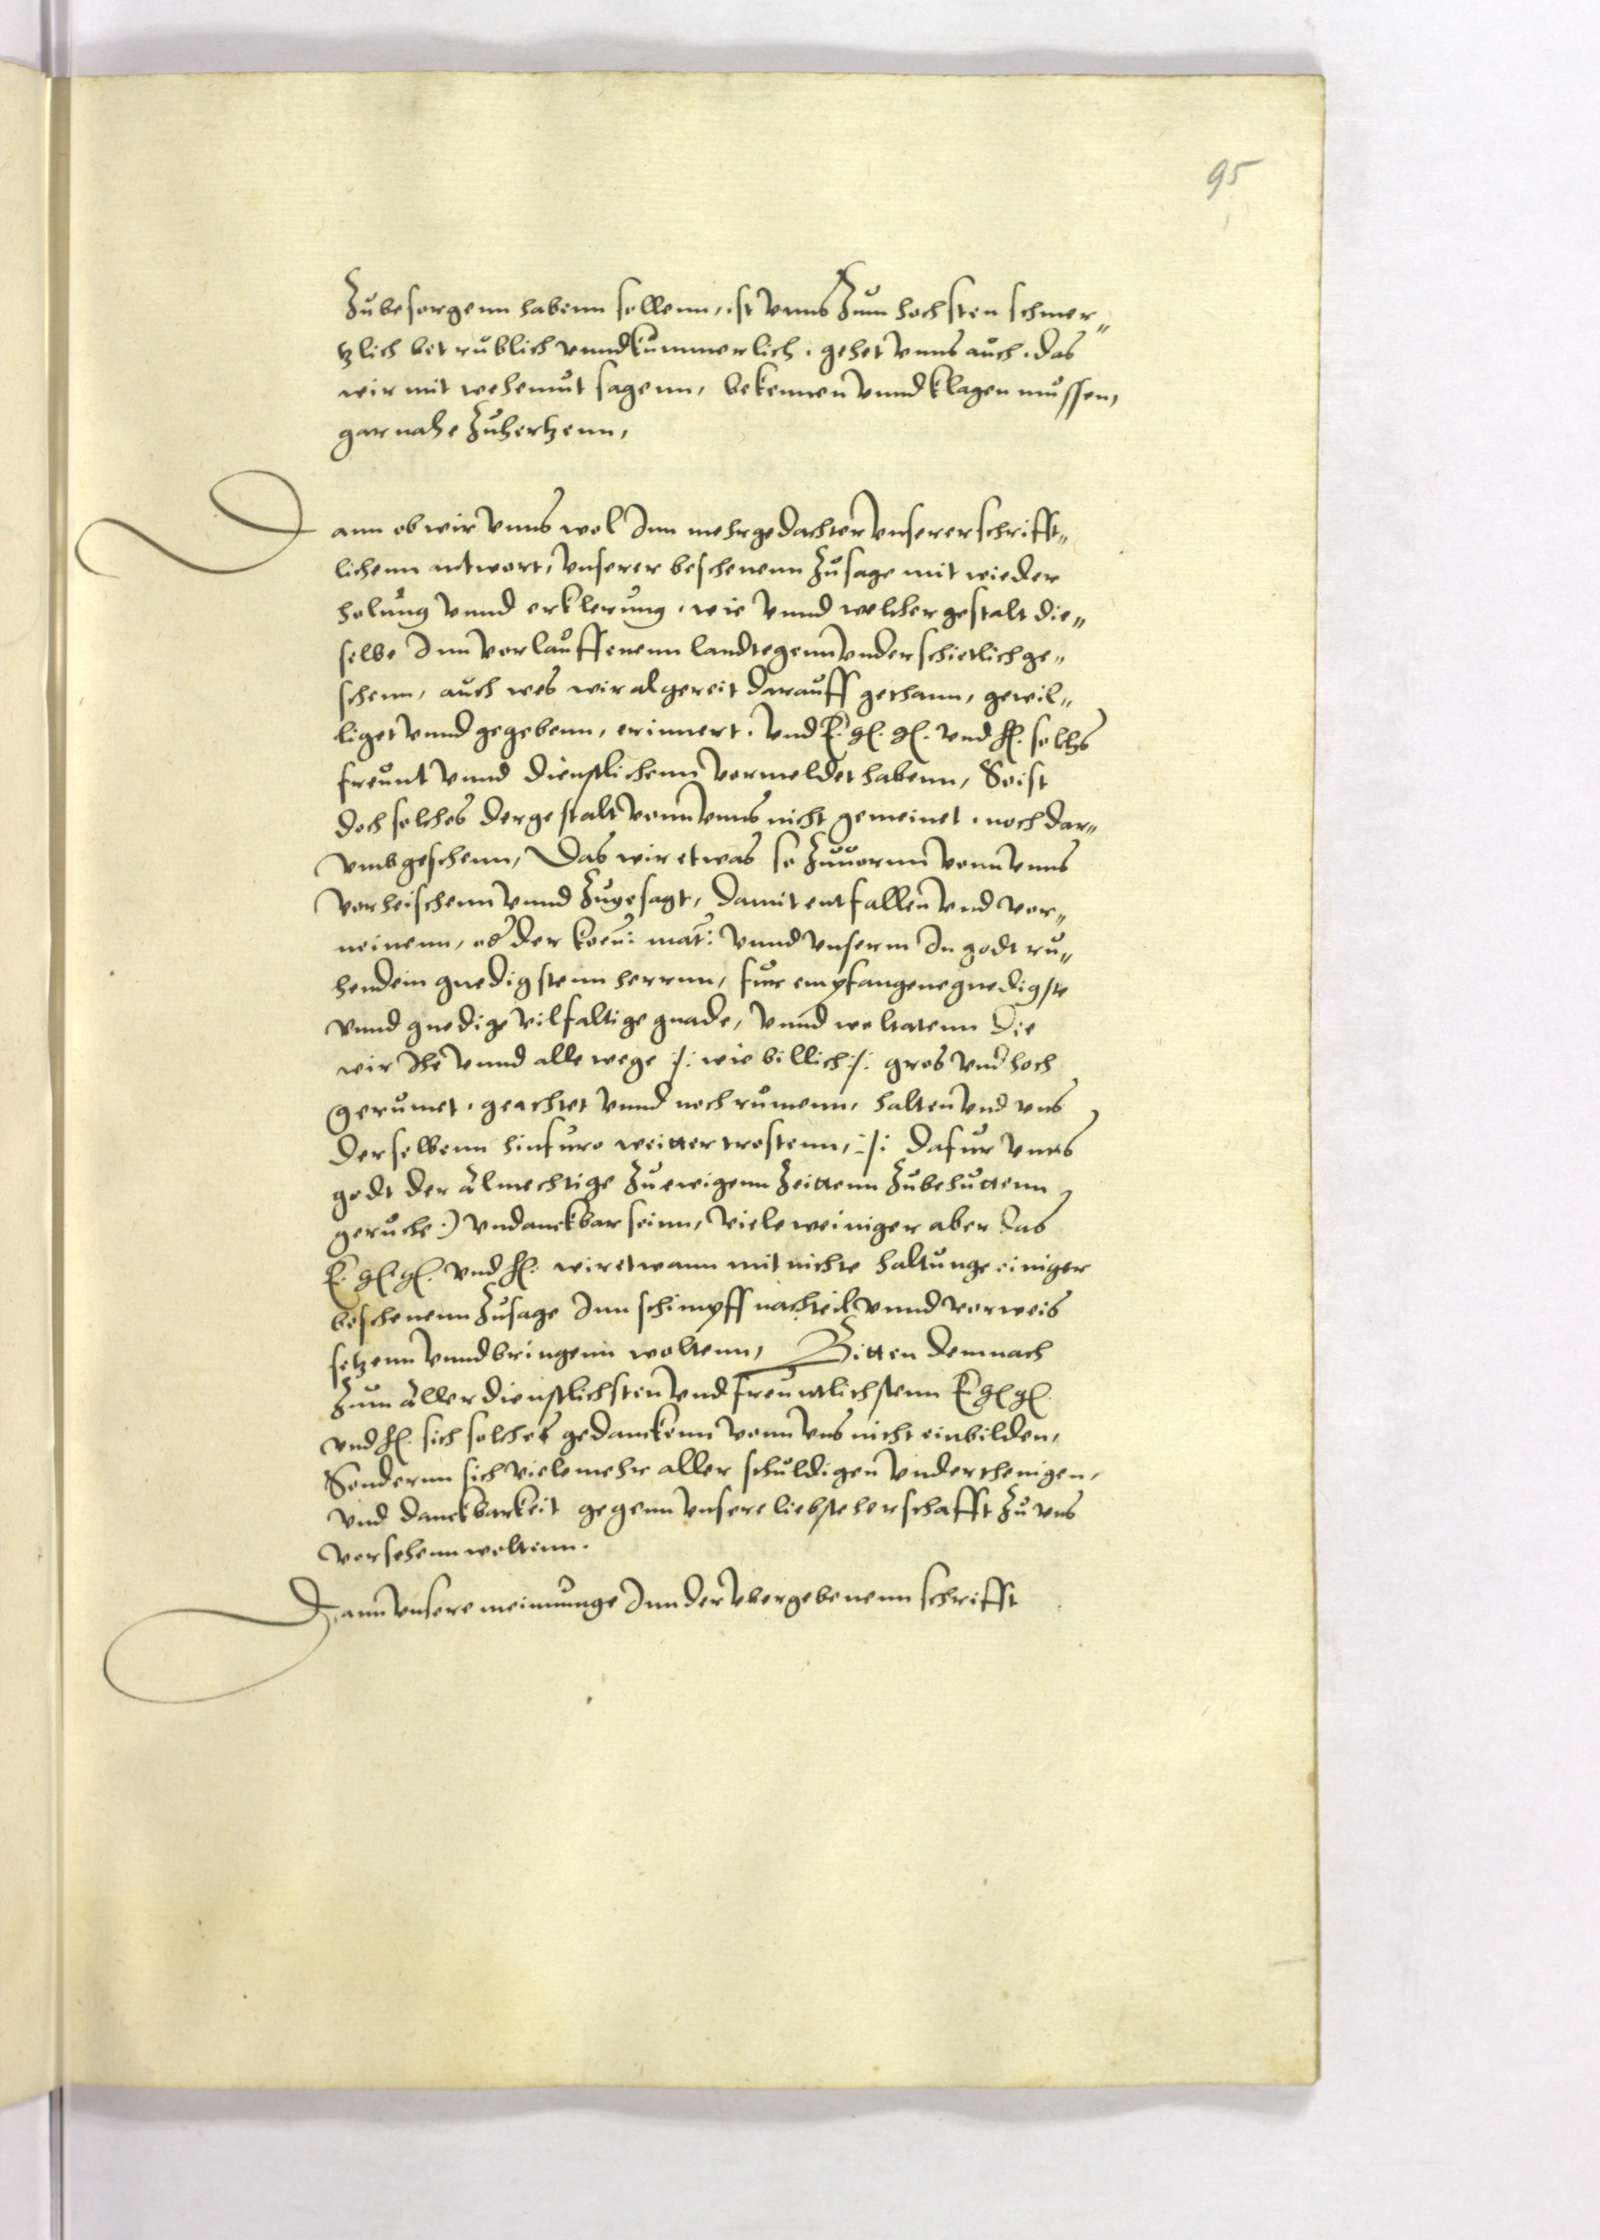 95
Zubesorgenn habenn sollenn, ist vnns Zum hochsten schmer„
tzlich betrublich vnnd kummerlich. gehet vnns auch. das
wir mit wehemut sagenn, bekennen vnnd klagen mussen,
gar nahe Zuhertzenn,
Dann ob wir vnns wol Inn mehrgedachter vnserer schrifft„
lichenn antwort, vnserer beschenenn Zusage mit wieder
holung vnnd erklerung. wie vnnd welcher gestalt die„
selbe Inn vorlauffenenn landtegenn vnderschietlich ge„
schenn, auch wes wir algereit darauff gethann, gewil„
liget vnnd gegebenn, erinnert. vnd E. g. g. vnd h. solchs
freunt vnnd dienstlichenn vermeldet habenn, So ist
doch solches dergestalt vonn vnns nicht gemeinet. noch dar„
vmb geschenn, Das wir etwas so Zuuornn vonn vnns
vorheischenn vnnd Zugesagt, damit entfallen vnd vor„
neinenn, od der koen: mat: vnnd vnserm In godt ru„
hendein gnedigstenn herrnn, fur empfangene gnedigste
vnnd gnedige vilfaltige gnade, vnnd woltatenn die
wir Ihe vnnd alle wege /: wie billich :/ gros vnd hoch
gerumet. geachtet vnnd noch rumenn, halten vnd vns
derselbenn hinfuro weitter trostenn, :/: dafur vnns
godt der Almechtige Zu ewigenn Zeittenn Zubehuttenn
geruche :) vndanckbar seinn, viele weiniger aber das
E. g. g. vnd h. wir etwann mit nichte haltunge einiger
beschenenn Zusage Inn schimpff nachteil vnnd vorweis
setzenn vnnd bringenn woltenn, Bitten demnach
Zum Aller dienstlichsten vnd freuntlichstenn E. g. g.
vnd h. sich solches gedanckenn vonn vns nicht einbilden,
Sondernn sich viele mehr aller schuldigen vnderthenigen,
vnd danckbarkeit gegenn vnsere liebste herschafft Zu vns
versehenn woltenn.
Dann vnsere meinunge Inn der vbergebenenn schrifft